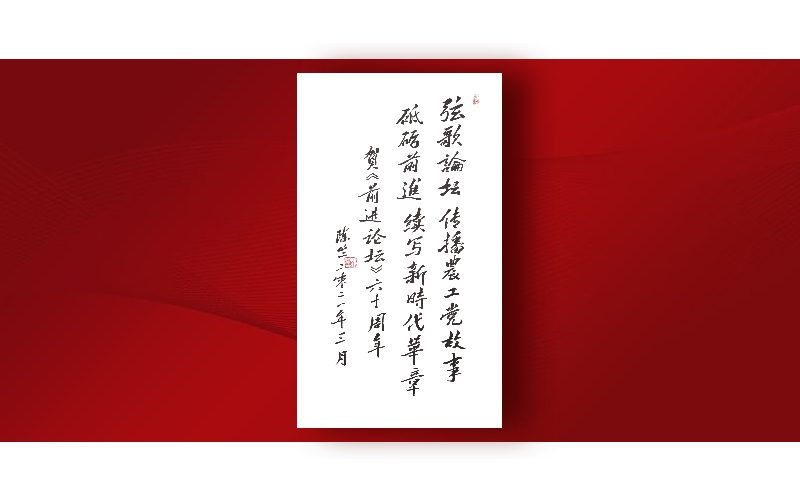 弦歌論坛 传播農工党故事
砥砺前進 续写新時代華章
賀《前进论坛》六十周年
陈竺 二零二一年三月